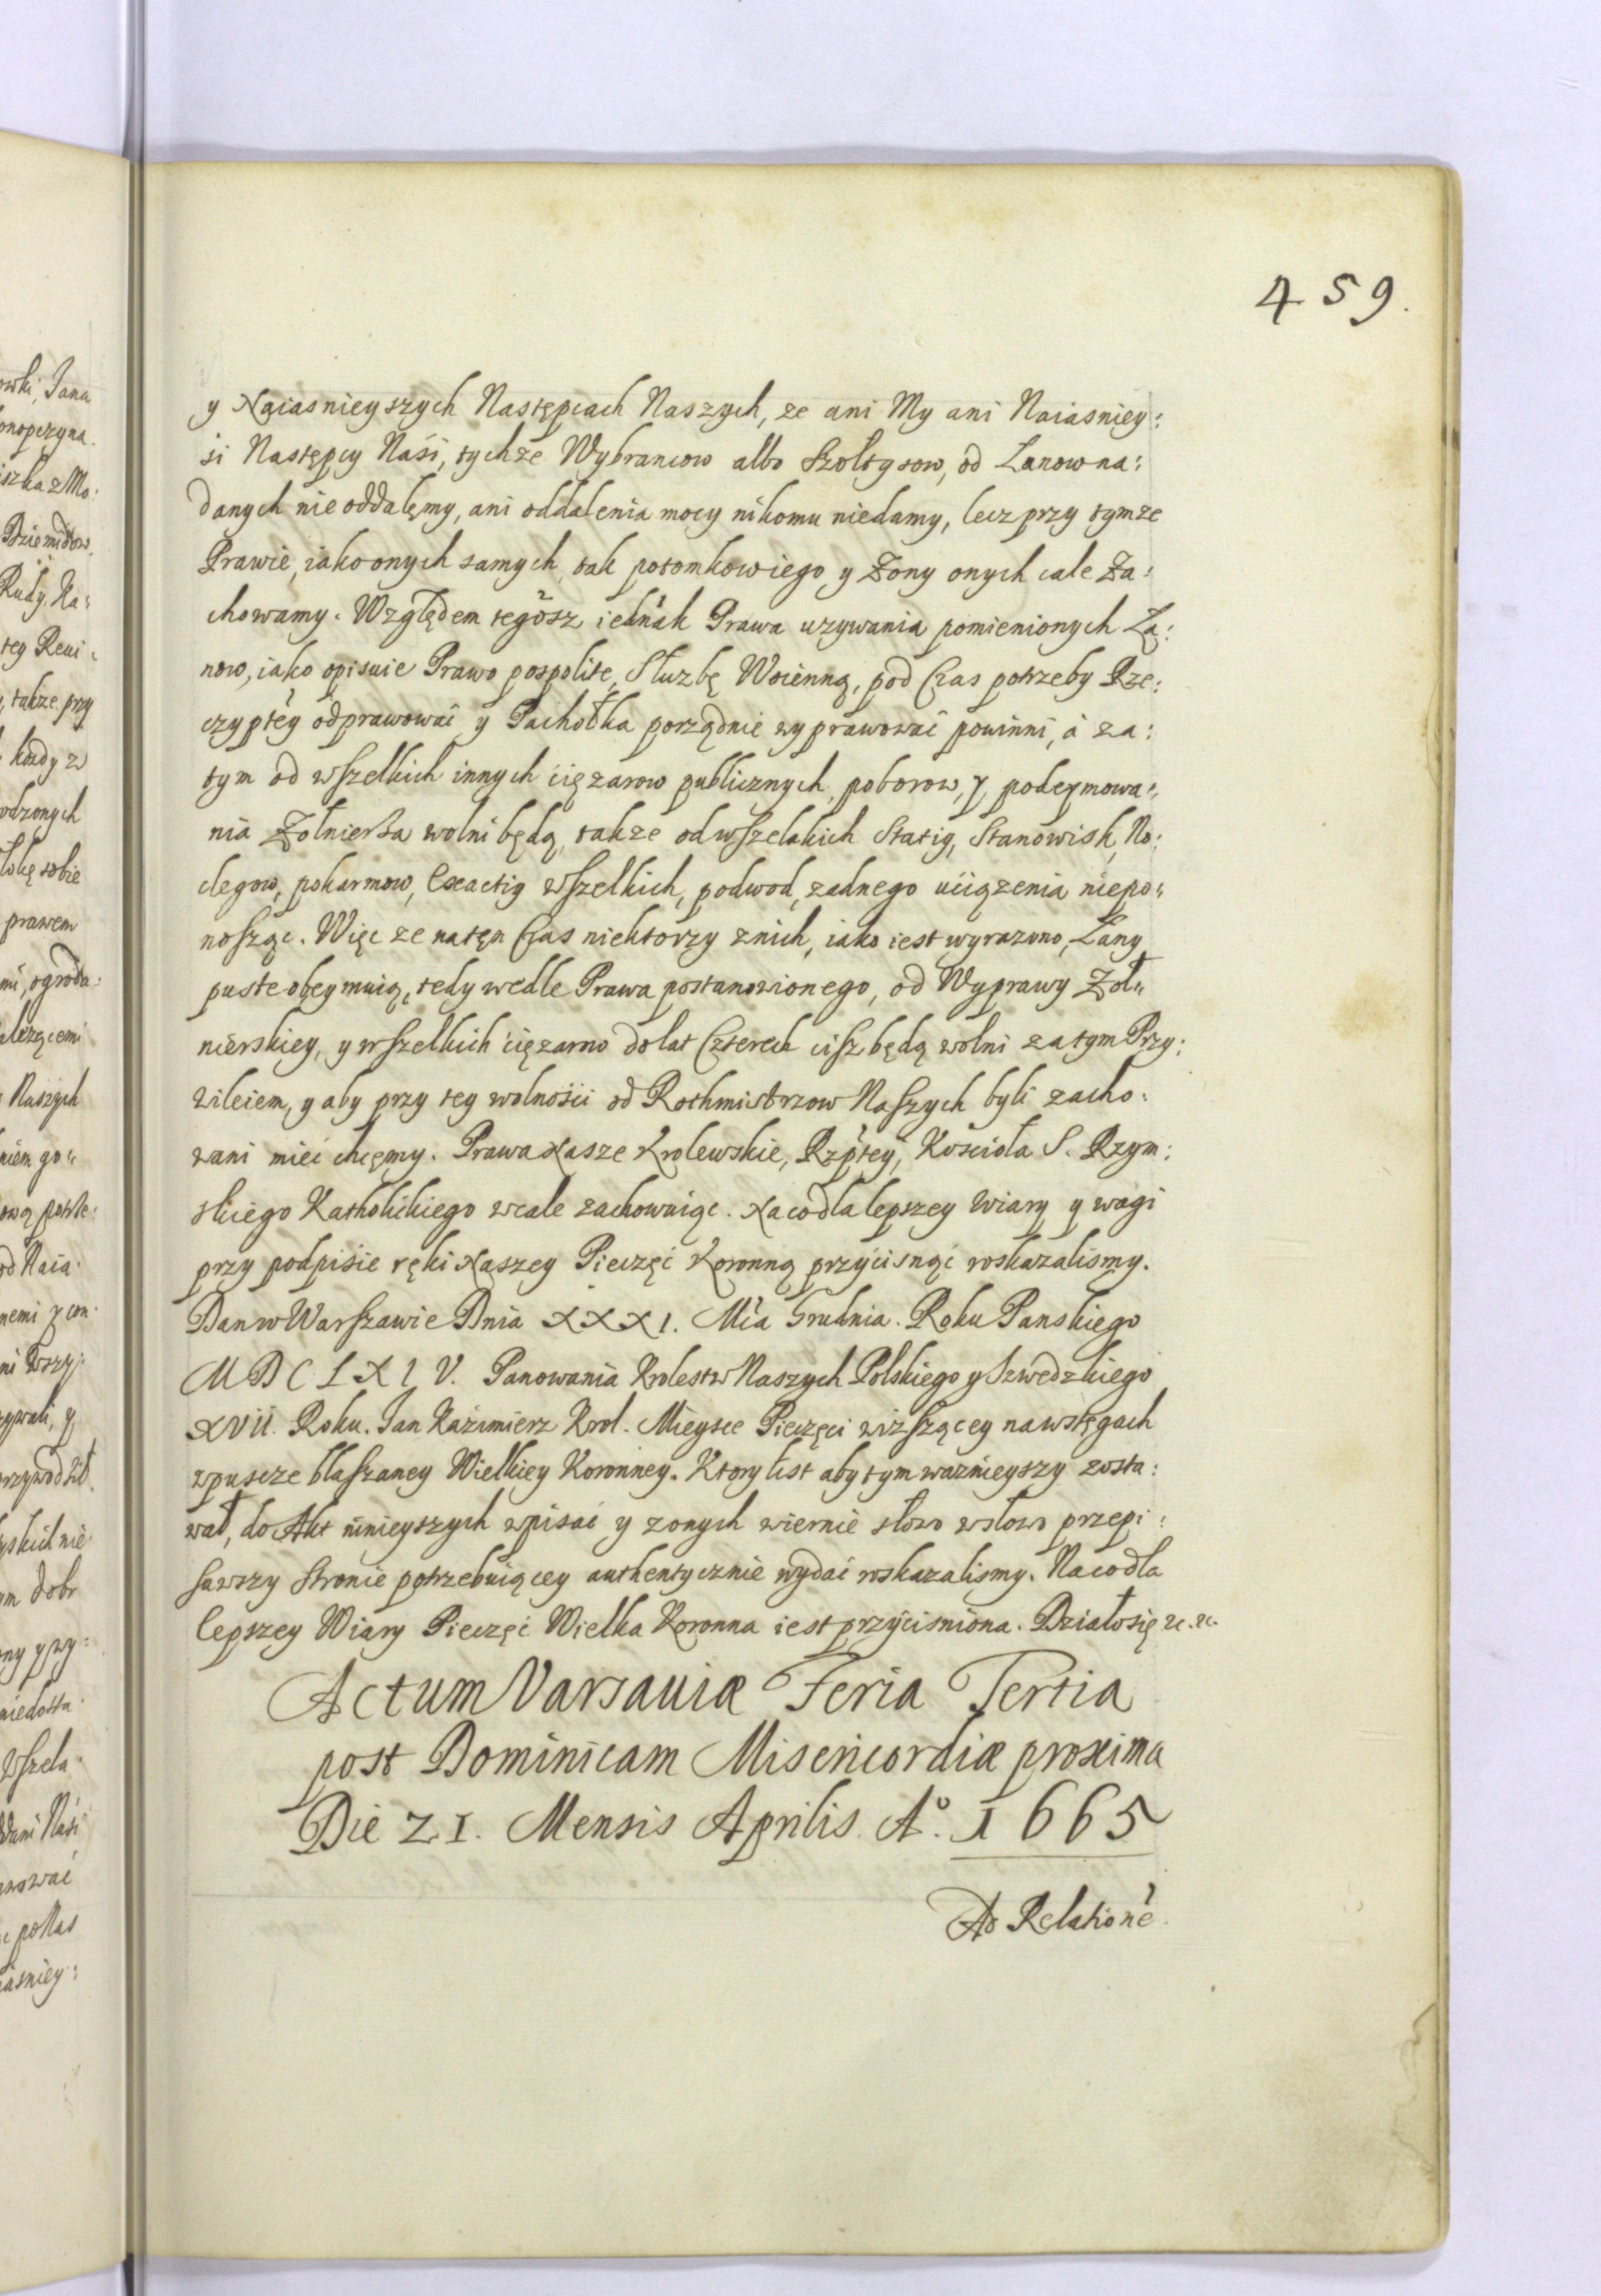 459.
y Naiasnieyszych Następcach Naszych, ze ani My ani Naiasniey:
śi Następcy Naśi, tychze Wybrancow albo Szołtysow, od Łanow na:
danych nie oddalęmy, ani oddalenia mocy nikomu niedamy, lecz przy tymze
Prawie, iako onych samych, tak potomkow iego y Zony onych cale Za:
chowamy. Względem tegosz iednak Prawa uzywania pomienionych Ła:
now, iako opisuie Prawo pospolite, Słuzbę Woienną, pod Czas potrzeby Rze:
czyptey odprawować y Pachołka porządnie wyprawować powinni, á za:
tym od wszelkich innych cięzarow publicznych, poborow, y podeymowa:
nia Zołniersa wolni będą, takze od wszelakich Statiy, Stanowisk, No:
clegow, pokarmow, Exactiy wszelkich, podwod, zadnego uciązenia niepo:
nosząc. Więc ze na tęn Czas niektorzy znich, iako iest wyrazono, Łany
puste obeymuią, tedy wedle Prawa postanowionego, od Wyprawy Zoł:
nierskiey, y wszelkich cięzarow do lat Czterech cisz będą wolni za tym Przy:
wileiem, y aby przy tey wolnośći od Rothmistrzow Naszych byli zacho:
wani mieć chcęmy. Prawa Nasze Krolewskie, Rzptey, Kościoła S. Rzym:
skiego Katholickiego wcale zachowuiąc. Na co dla lepszey wiary y wagi
przy podpiśie ręki Naszey Pieczęć Koronną przyćisnąć roskazaliśmy.
Dan w Warszawie Dnia XXXI. Mca Grudnia. Roku Panskiego
MDCLXIV. Panowania Krolestw Naszych Polskiego y Szwedzkiego
XVII. Roku. Jan Kaźimierz Krol. Mieysce Pieczęci wiszącey na wstęgach
w puszcze blaszaney Wielkiey Koronney. Ktory list aby tym waznieyszy zosta:
wał, do Akt ninieyszych wpisać y z onych wiernie słowo w słowo przepi:
sawszy stronie potrzebuiącey authentycznie wydać roskazaliśmy. Na co dla
lepszey Wiary Pieczęć Wielka Koronna iest przyćisniona. Działo się &c. &c.
Actum Varsaviæ Feria Tertia
post Dominicam Misericordiæ proxima
Die 21. Mensis Aprilis. Aº. 1665
Ad Relatione